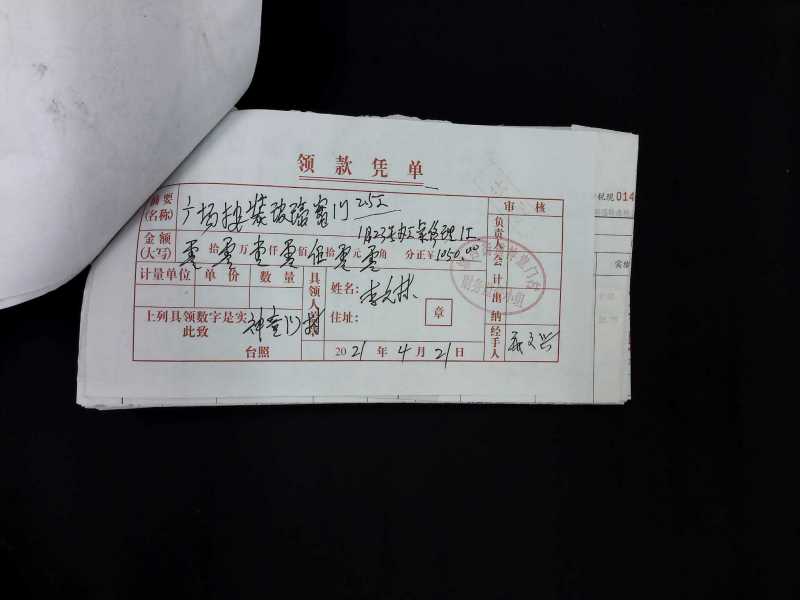 领款凭单
摘要(名称) 广场按装玻璃窗门 25工
1月22号办工桌修理 1工
金额(大写) 零 拾 零 万 壹 仟 零 佰 伍 拾 零 元 零 角 分正 ¥1050.00
计量单位 单价 数量
具领人 姓名: 李允林
住址: 章
上列具领数字是实
此致
台照
2021年4月21日
审核
负责人
会计
出纳
经手人
税现 014